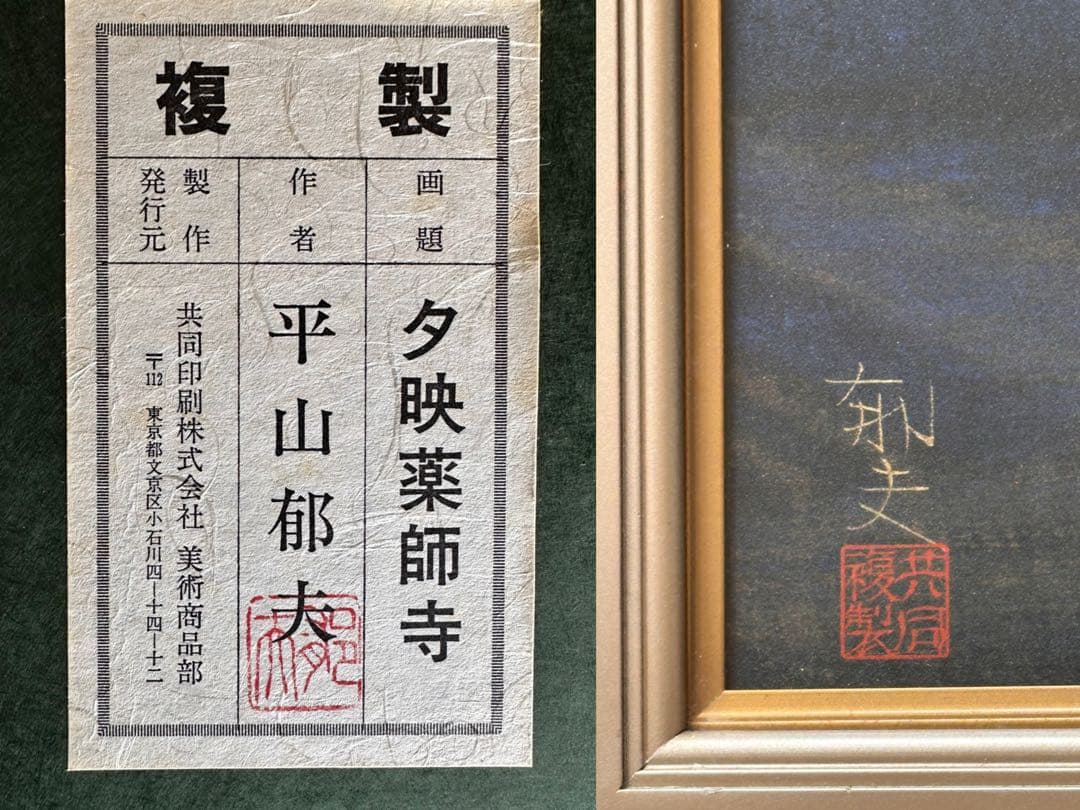 複製
画題
夕映薬師寺
作者
平山郁夫
郁夫
製作
発行元
共同印刷株式会社 美術商品部
〒112 東京都文京区小石川四―十四―十二
郁夫
共同
複製